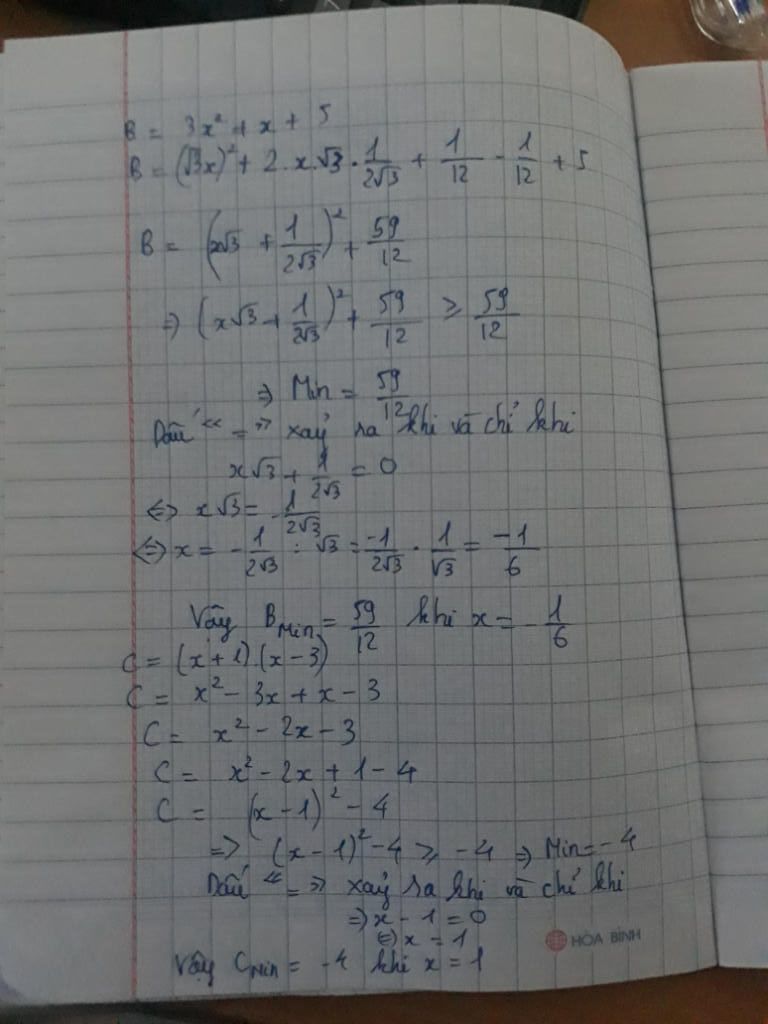 B = 3x² + x + 5
B = (√3x)² + 2.x.√3.1/2√3 + 1/12 - 1/12 + 5
B = (x√3 + 1/2√3)² + 59/12
=> (x√3 + 1/2√3)² + 59/12 ≥ 59/12
=> Min = 59/12
Dấu "=" xảy ra khi và chỉ khi
x√3 + 1/2√3 = 0
<=> x√3 = -1/2√3
<=> x = -1/2√3 : √3 = -1/2√3 . 1/√3 = -1/6
Vậy BMin = 59/12 khi x = -1/6
C = (x+1).(x-3)
C = x² - 3x + x - 3
C = x² - 2x - 3
C = x² - 2x + 1 - 4
C = (x - 1)² - 4
=> (x - 1)² - 4 ≥ -4 => Min = -4
Dấu "=" xảy ra khi và chỉ khi
=> x - 1 = 0
<=> x = 1
HÒA BÌNH
Vậy CMin = -4 khi x = 1